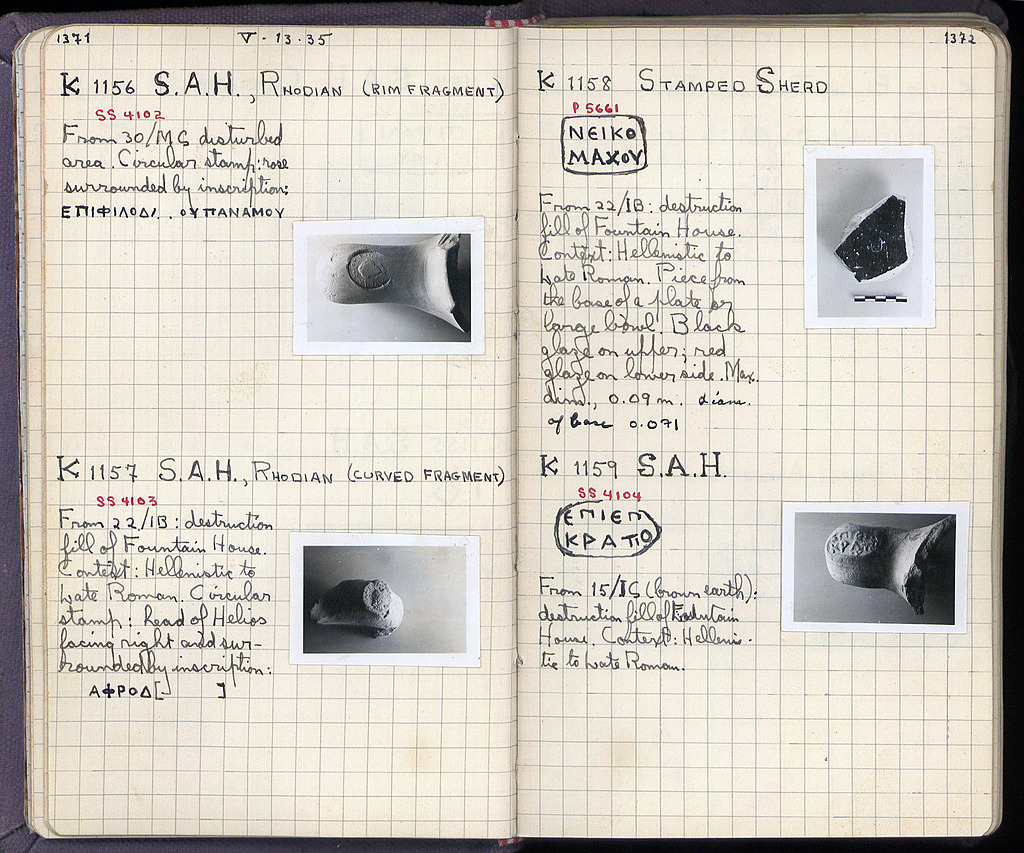 1371
V - 13.35
K 1156 S.A.H., RHODIAN (RIM FRAGMENT)
SS 4102
From 30/ΜϚ disturbed
area. Circular stamp: rose
surrounded by inscription:
ΕΠΙΦΙΛΟΔΙ . . ΟΥΠΑΝΑΜΟΥ
K 1157 S.A.H., RHODIAN (CURVED FRAGMENT)
SS 4103
From 22/ΙΒ: destruction
fill of Fountain House.
Context: Hellenistic to
Late Roman. Circular
stamp: head of Helios
facing right and sur-
rounded by inscription:
ΑΦΡΟΔ[- ]
1372
K 1158 STAMPED SHERD
P 5661
ΝΕΙΚΟ
ΜΑΧΟΥ
From 22/ΙΒ: destruction
fill of Fountain House.
Context: Hellenistic to
Late Roman. Piece from
the base of a plate or
large bowl. Black
glaze on upper; red
glaze on lower side. Max.
dim., 0.09 m. diam.
of base 0.071
K 1159 S.A.H.
SS 4104
ΕΠΙΕΠ
ΚΡΑΤΟ
From 15/ΙϚ (brown earth):
destruction fill of Fountain
House. Context: Hellenis-
tic to Late Roman.